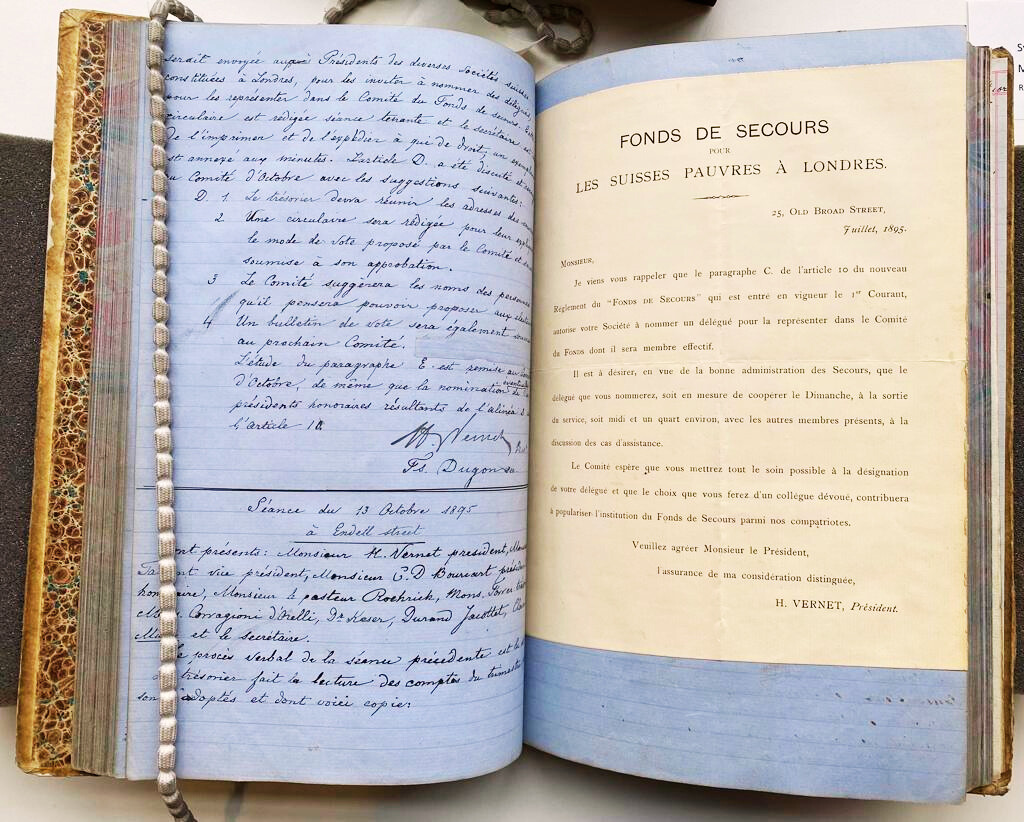 serait envoyée aux Présidents des diverses Sociétés suisses
constituées à Londres, pour les inviter à nommer des délégués
pour les représenter dans le Comité du Fonds de secours. Cette
circulaire est rédigée séance tenante et le secrétaire est
de l'imprimer et de l'expédier à qui de droit; un exemplaire
est annexé aux minutes. L'article D. a été discuté et
au Comité d'Octobre avec les suggestions suivantes:
D. 1. Le trésorier devra réunir les adresses des
2 Une circulaire sera rédigée pour leur
le mode de vote proposé par le Comité et
soumise à son approbation.
3 Le Comité suggérera les noms des personnes
qu'il pensera pouvoir proposer aux
4 Un bulletin de vote sera également soumis
au prochain Comité.
L'étude du paragraphe E est remise au
d'Octobre, de même que la nomination
présidents honoraires résultants de l'alinéa
l'article 10.
H Vernet
Fs. Dugon
Séance du 13 Octobre 1895
à Endell street
présents: Monsieur H. Vernet president,
vice président, Monsieur C. D Bourcart
honoraire, Monsieur le pasteur Roehrich, Mons. Forrer
Corragioni d'Orelli, Dr Keser, Durand Jacottet,
et le secrétaire.
Le procès verbal de la séance précédente est
trésorier fait la lecture des comptes du trimestre
adoptés et dont voici copie:
FONDS DE SECOURS
POUR
LES SUISSES PAUVRES À LONDRES.
25, Old Broad Street,
Juillet, 1895.
Monsieur,
Je viens vous rappeler que le paragraphe C. de l'article 10 du nouveau
Règlement du "Fonds de Secours" qui est entré en vigueur le 1er Courant,
autorise votre Société à nommer un délégué pour la représenter dans le Comité
du Fonds dont il sera membre effectif.
Il est à désirer, en vue de la bonne administration des Secours, que le
délégué que vous nommerez, soit en mesure de coopérer le Dimanche, à la sortie
du service, soit midi et un quart environ, avec les autres membres présents, à la
discussion des cas d'assistance.
Le Comité espère que vous mettrez tout le soin possible à la désignation
de votre délégué et que le choix que vous ferez d'un collègue dévoué, contribuera
à populariser l'institution du Fonds de Secours parmi nos compatriotes.
Veuillez agréer Monsieur le Président,
l'assurance de ma considération distinguée,
H. VERNET, Président.